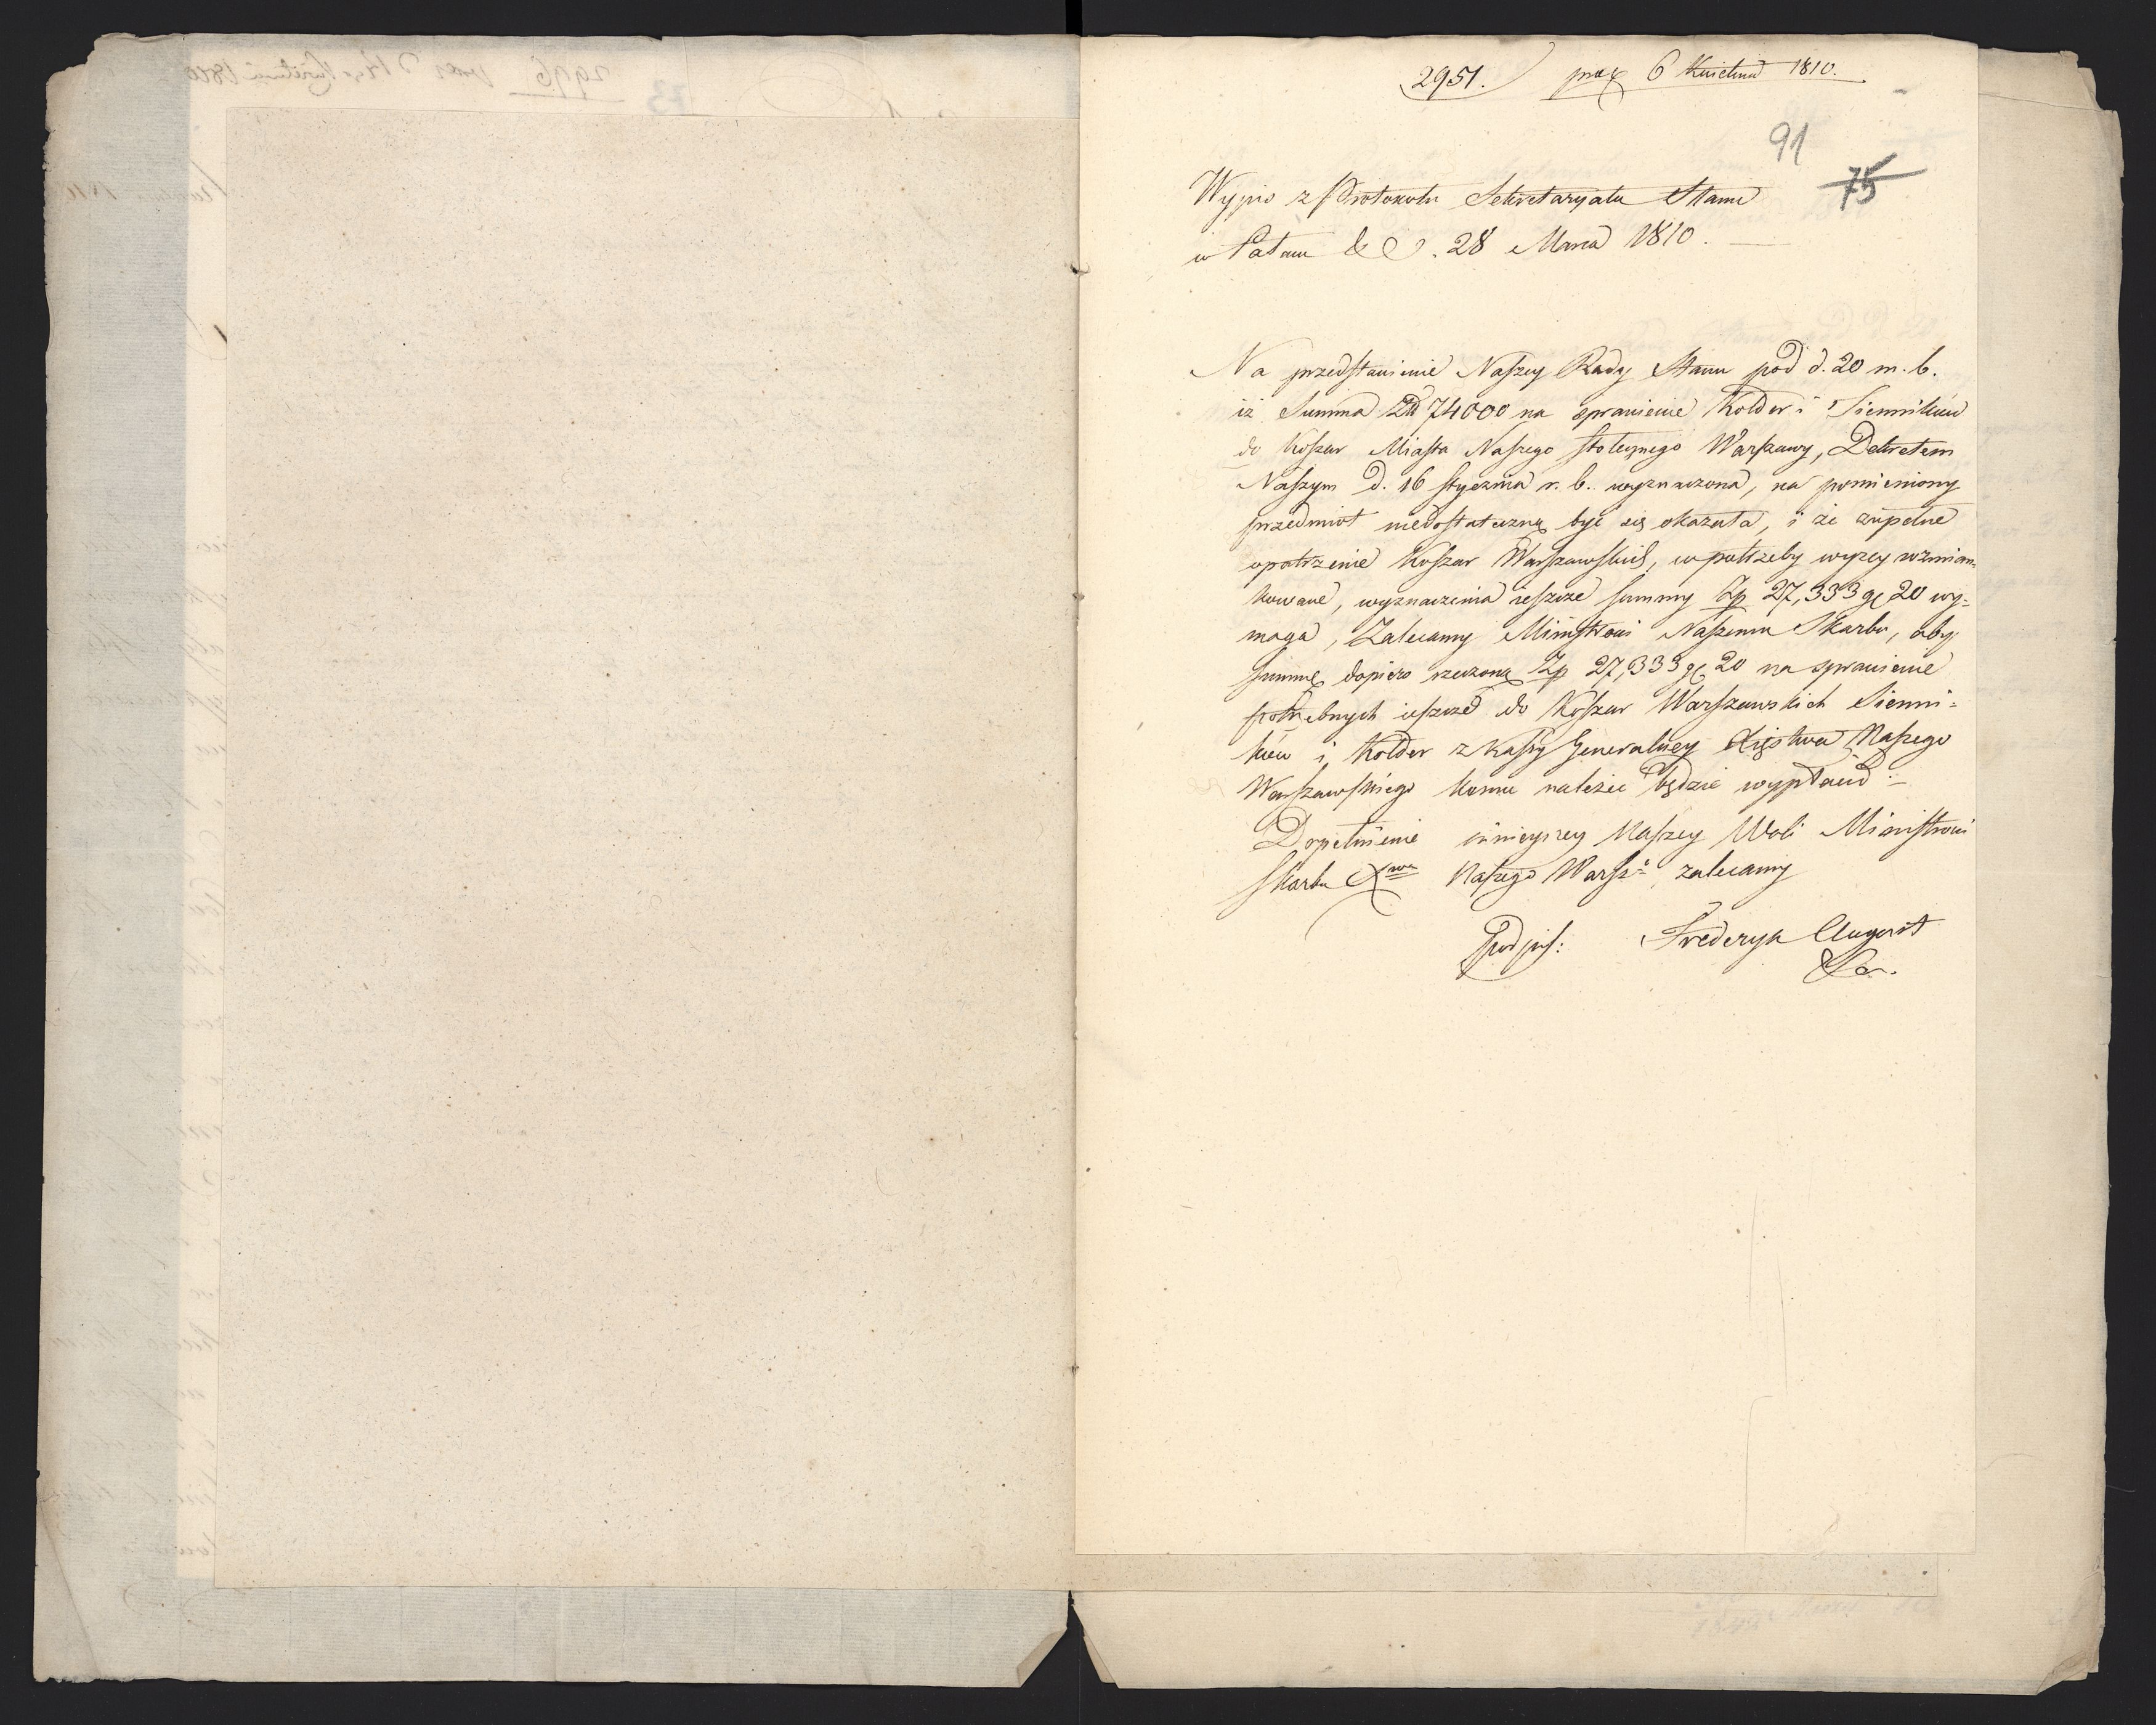 2951. prez 6 Kwietnia 1810.
91
75
Wypis z Protokołu Sekretaryatu Stanu
w Pałacu d. 28 Marca 1810.
Na przedstawienie Naszey Rady Stanu pod d. 20 m. b.
iż Summa Złł 74000 na sprawienie Kołder i Sienników
do Koszar Miasta Naszego stołecznego Warszawy, Dekretem
Naszym D. 16 stycznia r. b. wyznaczona, na pomieniony
przedmiot niedostateczną być się okazała, i że zupełne
opatrzenie Koszar Warszawskich, w potrzeby wyżey wzmian-
kowane, wyznaczenia ieszcze summy Zp 27,333 gr 20 wy=
maga, Zalecamy Ministrowi Naszemu Skarbu, aby
summę dopiero rzeczoną Zp 27,333 gr 20 na sprawienie
potrzebnych ieszcze do Koszar Warszawskich Sienni=
ków i Kołder z kassy Generalney Xięstwa Naszego
Warszawskiego komu należeć będzie wypłacił.–
Dopełnienie ninieyszey Naszey Woli Ministrowi
Skarbu Xwa Naszego Warszo zalecamy
Podpis: Frederyk August